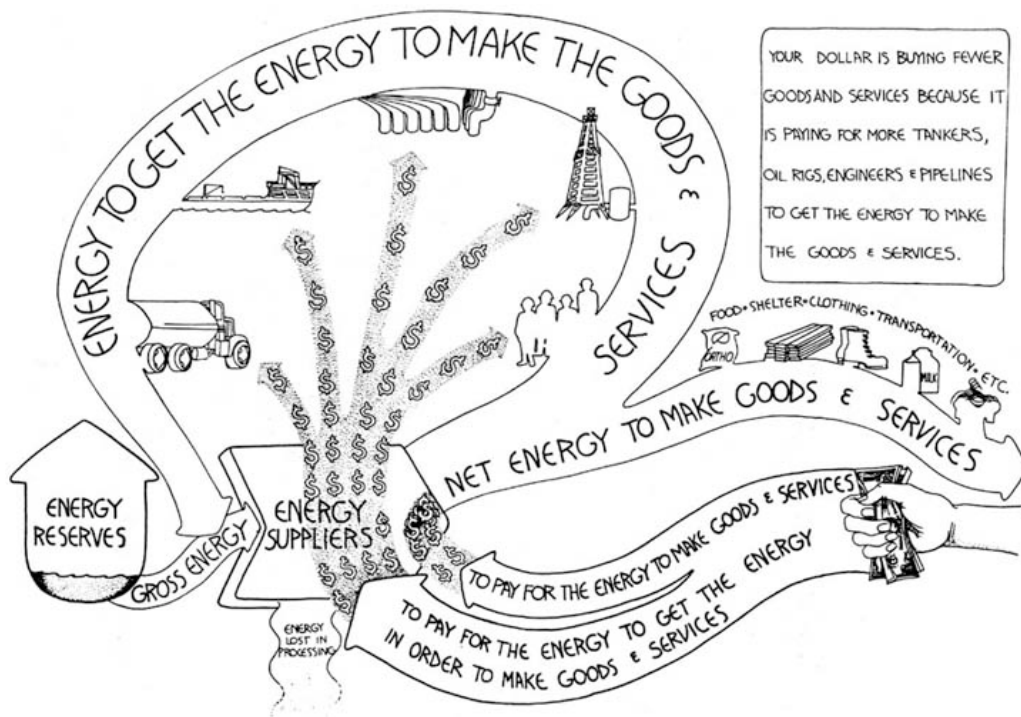 ENERGY TO GET THE ENERGY TO MAKE THE GOODS & SERVICES
YOUR DOLLAR IS BUYING FEWER
GOODS AND SERVICES BECAUSE IT
IS PAYING FOR MORE TANKERS,
OIL RIGS, ENGINEERS & PIPELINES
TO GET THE ENERGY TO MAKE
THE GOODS & SERVICES.
FOOD • SHELTER • CLOTHING • TRANSPORTATION • ETC.
ORTHO
MILK
NET ENERGY TO MAKE GOODS & SERVICES
ENERGY
RESERVES
GROSS ENERGY
ENERGY
SUPPLIERS
ENERGY
LOST IN
PROCESSING
TO PAY FOR THE ENERGY TO MAKE GOODS & SERVICES
TO PAY FOR THE ENERGY TO GET THE ENERGY
IN ORDER TO MAKE GOODS & SERVICES